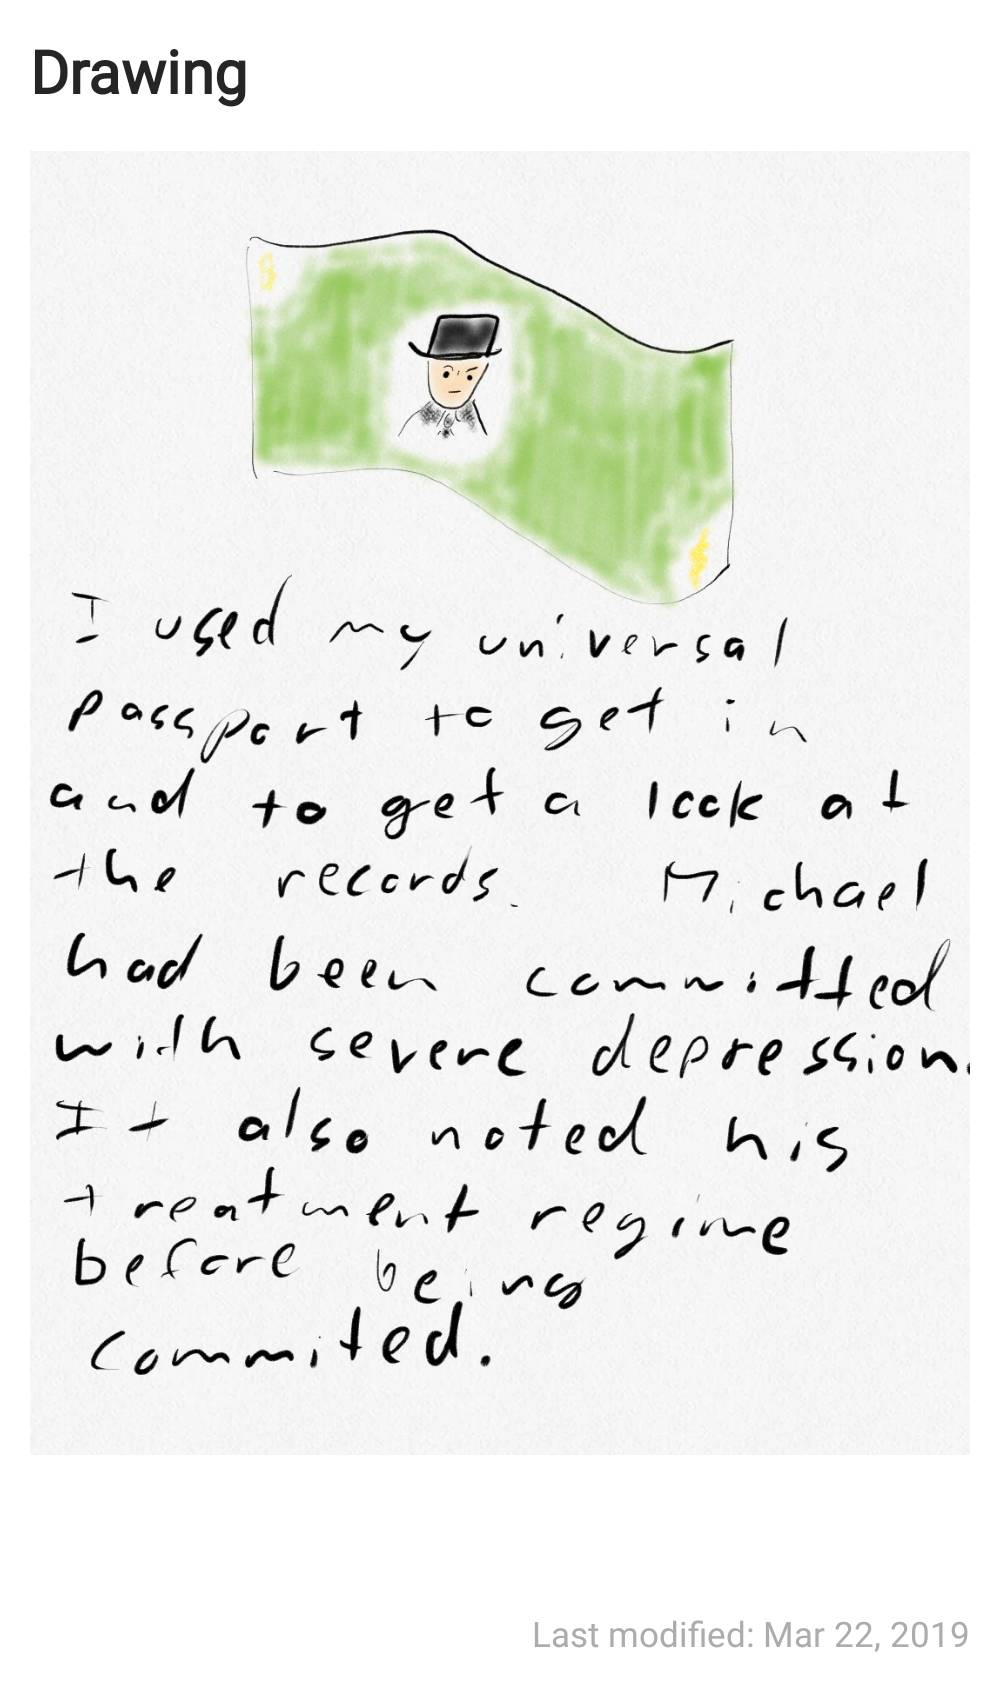 Drawing
I used my universal
passport to get in
and to get a look at
the records. Michael
had been committed
with severe depression.
It also noted his
treatment regime
before being
commited.
Last modified: Mar 22, 2019